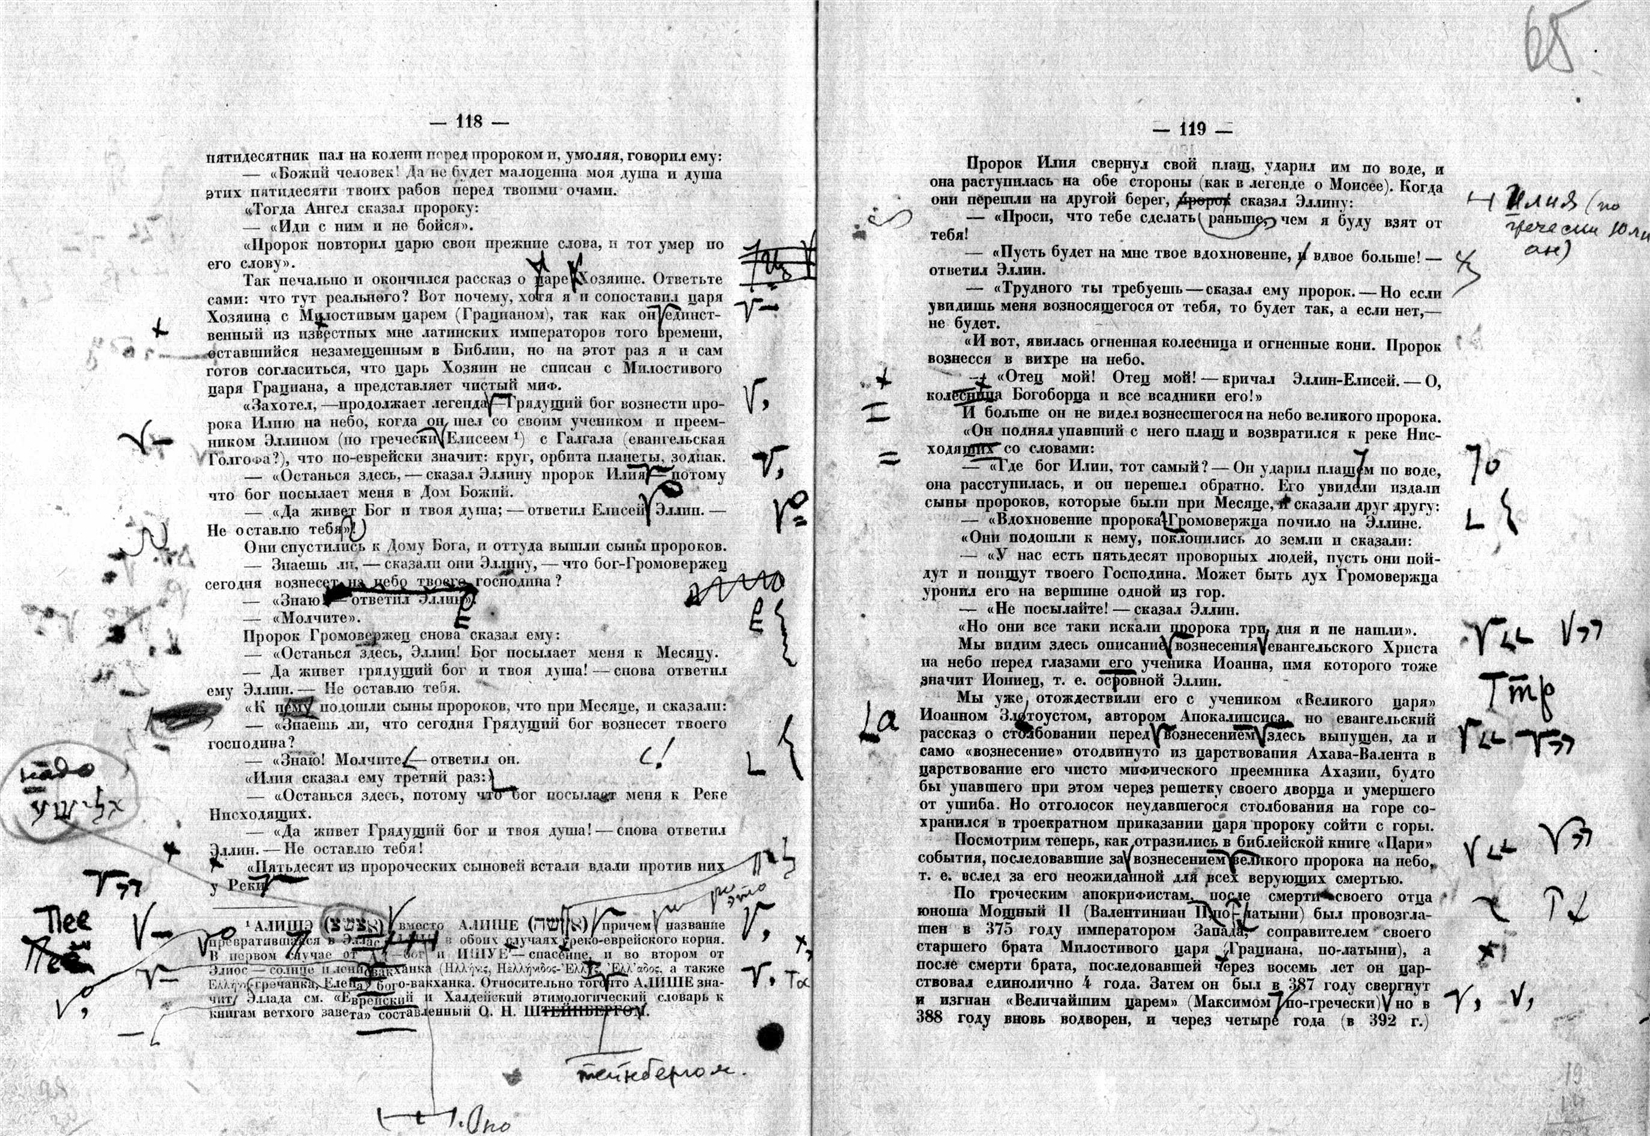 — 118 —
пятидесятник пал на колени перед пророком и, умоляя, говорил ему:
— «Божий человек! Да не будет малоценна моя душа и душа
этих пятидесяти твоих рабов перед твоими очами.
«Тогда Ангел сказал пророку:
— «Иди с ним и не бойся».
«Пророк повторил царю свои прежние слова, и тот умер по
его слову».
Так печально и окончился рассказ о царе Хозяине. Ответьте
сами: что тут реального? Вот почему, хотя я и сопоставил царя
Хозяина с Милостивым царем (Грацианом), так как он единст-
венный из известных мне латинских императоров того времени,
оставшийся незамещенным в Библии, но на этот раз я и сам
готов согласиться, что царь Хозяин не списан с Милостивого
царя Грациана, а представляет чистый миф.
«Захотел, — продолжает легенда — Грядущий бог вознести про-
рока Илию на небо, когда он шел со своим учеником и преем-
ником Эллином (по гречески Елисеем ¹) с Галгала (евангельская
Голгофа?), что по-еврейски значит: круг, орбита планеты, зодиак.
— «Останься здесь, — сказал Эллину пророк Илия — потому
что бог посылает меня в Дом Божий.
— «Да живет Бог и твоя душа; — ответил Елисей Эллин. —
Не оставлю тебя»!
Они спустились к Дому Бога, и оттуда вышли сыны пророков.
— Знаешь ли, — сказали они Эллину, — что бог-Громовержец
сегодня вознесет на небо твоего господина?
— «Знаю — ответил Эллин».
— «Молчите».
Пророк Громовержец снова сказал ему:
— «Останься здесь, Эллин! Бог посылает меня к Месяцу.
— Да живет грядущий бог и твоя душа! — снова ответил
ему Эллин. — Не оставлю тебя.
«К нему подошли сыны пророков, что при Месяце, и сказали:
— «Знаешь ли, что сегодня Грядущий бог вознесет твоего
господина?
— «Знаю! Молчите — ответил он.
«Илия сказал ему третий раз:
— «Останься здесь, потому что бог посылает меня к Реке
Нисходящих.
— «Да живет Грядущий бог и твоя душа! — снова ответил
Эллин. — Не оставлю тебя!
«Пятьдесят из пророческих сыновей встали вдали против них
у Реки
надо
¹ АЛИШЭ вместо АЛИШЕ причем название
превратившаяся в в обоих случаях греко-еврейского корня.
В первом случае от бог и ИШУЕ — спасение, и во втором от
Элиос — солнце вакханка а также
гречанка, Елена бого-вакханка. Относительно того что АЛИШЕ зна-
чит Эллада см. «Еврейский и Халдейский этимологический словарь к
книгам ветхого завета» составленный О. Н. ШТЕЙНБЕРГОМ.
тейнбергом.
65
— 119 —
Пророк Илия свернул свой плащ, ударил им по воде, и
она раступилась на обе стороны (как в легенде о Моисее). Когда
они перешли на другой берег, пророк сказал Эллину:
Илия (по
гречески Юли
ан)
— «Проси, что тебе сделать раньше, чем я буду взят от
тебя!
— «Пусть будет на мне твое вдохновение, и вдвое больше! —
ответил Эллин.
— «Трудного ты требуешь — сказал ему пророк. — Но если
увидишь меня возносящегося от тебя, то будет так, а если нет,—
не будет.
«И вот, явилась огненная колесница и огненные кони. Пророк
вознесся в вихре на небо.
— «Отец мой! Отец мой! — кричал Эллин-Елисей. — О,
колесница Богоборца и все всадники его!»
И больше он не видел вознесшегося на небо великого пророка.
«Он поднял упавший с него плащ и возвратился к реке Нис-
ходящих со словами:
— «Где бог Илии, тот самый? — Он ударил плащем по воде,
она расступилась, и он перешел обратно. Его увидели издали
сыны пророков, которые были при Месяце, и сказали друг другу:
— «Вдохновение пророка Громовержца почило на Эллине.
«Они подошли к нему, поклонились до земли и сказали:
— «У нас есть пятьдесят проворных людей, пусть они пой-
дут и поищут твоего Господина. Может быть дух Громовержца
уронил его на вершине одной из гор.
— «Не посылайте! — сказал Эллин.
«Но они все таки искали пророка три дня и не нашли».
Мы видим здесь описание вознесения евангельского Христа
на небо перед глазами его ученика Иоанна, имя которого тоже
значит Иониец, т. е. основной Эллин.
Мы уже отождествили его с учеником «Великого царя»
Иоанном Златоустом, автором Апокалипсиса, но евангельский
рассказ о столбовании перед вознесением здесь выпущен, да и
само «вознесение» отодвинуто из царствования Ахава-Валента в
царствование его чисто мифического преемника Ахазии, будто
бы упавшего при этом через решетку своего дворца и умершего
от ушиба. Но отголосок неудавшегося столбования на горе со-
хранился в троекратном приказании царя пророку сойти с горы.
Посмотрим теперь, как отразились в библейской книге «Цари»
события, последовавшие за вознесением великого пророка на небо,
т. е. вслед за его неожиданной для всех верующих смертью.
По греческим апокрифистам, после смерти своего отца
юноша Мощный II (Валентиниан II по-латыни) был провозгла-
шен в 375 году императором Запада, соправителем своего
старшего брата Милостивого царя (Грациана, по-латыни), а
после смерти брата, последовавшей через восемь лет он цар-
ствовал единолично 4 года. Затем он был в 387 году свергнут
и изгнан «Величайшим царем» (Максимом по-гречески) но в
388 году вновь водворен, и через четыре года (в 392 г.)